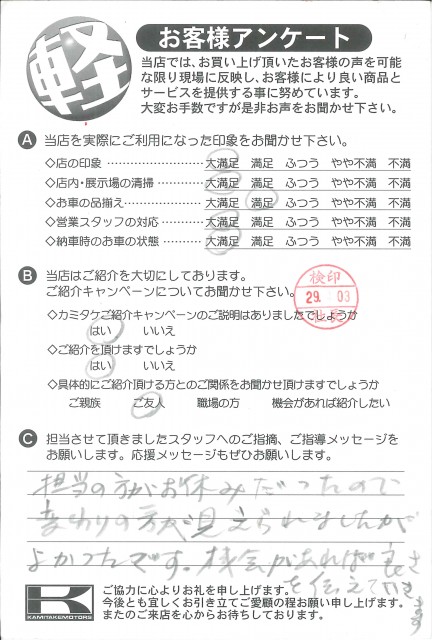 軽
お客様アンケート
当店では、お買い上げ頂いたお客様の声を可能
な限り現場に反映し、お客様により良い商品と
サービスを提供する事に努めています。
大変お手数ですが是非お声をお聞かせ下さい。
A 当店を実際にご利用になった印象をお聞かせ下さい。
◇店の印象 大満足 満足 ふつう やや不満 不満
◇店内・展示場の清掃 大満足 満足 ふつう やや不満 不満
◇お車の品揃え 大満足 満足 ふつう やや不満 不満
◇営業スタッフの対応 大満足 満足 ふつう やや不満 不満
◇納車時のお車の状態 大満足 満足 ふつう やや不満 不満
B 当店はご紹介を大切にしております。
ご紹介キャンペーンについてお聞かせ下さい。
検印
29. 03
◇カミタケご紹介キャンペーンのご説明はありましたでしょうか
はい いいえ
◇ご紹介を頂けますでしょうか
はい いいえ
◇具体的にご紹介頂ける方とのご関係をお聞かせ頂けますでしょうか
ご親族 ご友人 職場の方 機会があれば紹介したい
C 担当させて頂きましたスタッフへのご指摘、ご指導メッセージを
お願いします。応援メッセージもぜひお願いします。
担当の方がお休みだったので
まわりの方が見えられましたが
よかったです。機会があれば良さ
を伝えていきます
K
KAMITAKEMOTORS
ご協力に心よりお礼を申し上げます。
今後とも宜しくお引き立てご愛顧の程お願い申し上げます。
またのご来店を心からお待ちしております。